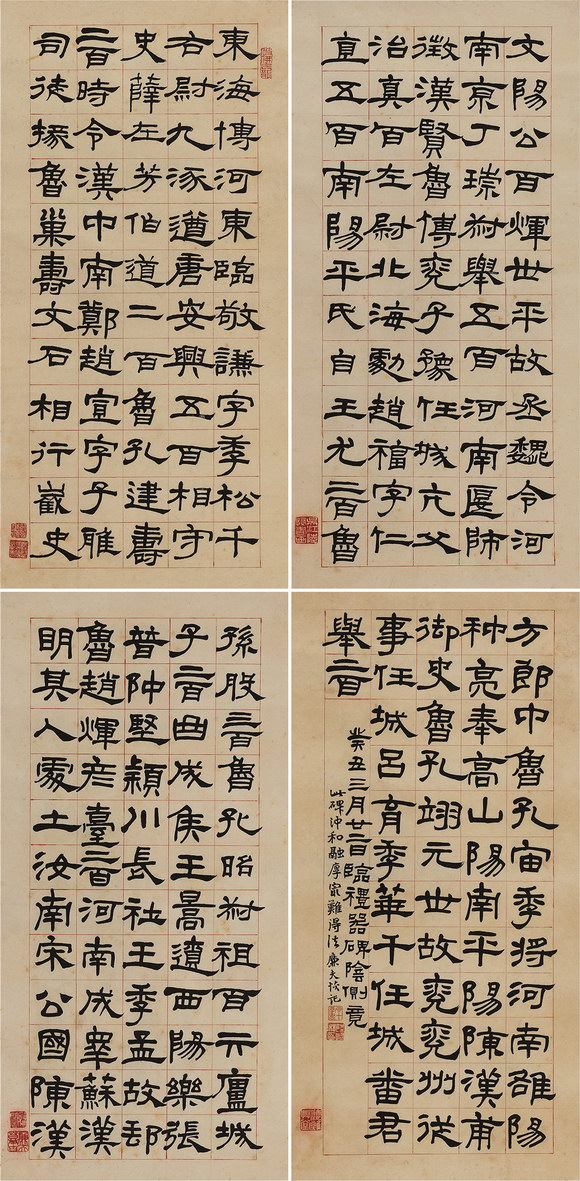 東海傅河東臨敬謙字季松千
右尉九涿遒唐安興五百相守
史薛左芳伯道二百魯孔建壽
二百時令漢中南鄭趙宣字子雅
司徒掾魯巢壽文石相行義史
文陽公百輝世平故丞魏令河
南京丁琮叔舉五百河南匽師
徵漢賢魯傅兗子豫任城亢父
治真百左尉北海劇趙福字仁
直五百南陽平氏自王尤二百魯
孫殷三百魯孔昭叔祖百亓廬城
子二百曲成侯王暠遼西陽樂張
普仲堅潁川長社王季孟故郡
魯趙輝彥臺二百河南成睾蘇漢
明其人處士汝南宋公國陳漢
方郎中魯孔宙季將河南雒陽
种亮奉高山陽南平陽陳漢甫
御史魯孔翊元世故兗兗州從
事任城呂育季華千任城番君
舉二百
癸丑三月廿二日臨禮器碑陰側竟
此碑沖和融厚最難得法廉夫識記